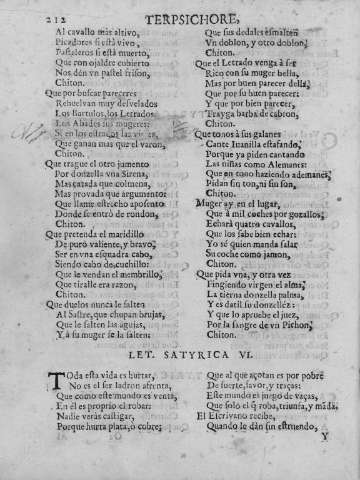 212 TERPSICHORE,
Al cavallo màs altivo,
Picadores si està vivo,
Pasteleros si està muerto,
Que con ojaldre cubierto
Nos dèn vn pastel frison,
Chiton.
Que por buscar pareceres
Rebuelvan muy desvelados
Los Bartulos, los Letrados,
Los Abades sus mugeres:
Si en los estrados las
Que ganan mas que el varon,
Chiton.
Que trague el otro jumento
Por donzella vna Sirena,
Mas catada que colmena,
Mas provada que argumento:
Que llame estrecho aposento
Donde se entrò de rondon,
Chiton.
Que pretenda el maridillo
De puro valiente, y bravo,
Ser en vna esquadra cabo,
Siendo cabo de cuchillo:
Que le vendan el membrillo,
Que tiralle era razon,
Chiton.
Que duelos nunca le falten
Al Sastre, que chupan brujas,
Que le falten las agujas,
Y à su muger se la salten:
Que sus dedales esmalten
Vn doblon, y otro doblon,
Chiton.
Que el Letrado venga à ser
Rico con su muger bella,
Mas por buen parecer della,
Que por su buen parecer:
Y que por bien parecer,
Trayga barba de cabron,
Chiton.
Que tonos à sus galanes
Cante Iuanilla estafando,
Porque ya piden cantando
Las niñas como Alemanes:
Que en tono haziendo ademanes,
Pidan sin ton, ni sin son,
Chiton.
Muger ay en el lugar,
Que à mil coches por gozallos,
Echarà quatro cavallos,
Que los sabe bien echar:
Yo sè quien manda salar
Su coche como jamon,
Chiton.
Que pida vna, y otra vez
Fingiendo virgen el alma,
La tierna donzella palma,
Y es datil su donzellèz:
Y que lo apruebe el juez,
Por la sangre de vn Pichon,
Chiton.
LET. SATYRICA VI.
TOda esta vida es hurtar,
No es el ser ladron afrenta,
Que como este mundo es venta,
En èl es proprio el robar:
Nadie veràs castigar,
Porque hurta plata, ò cobre;
Que al que açotan es por pobre
De suerte, favor, y traças:
Este mundo es juego de vaças,
Que solo el q̃ roba, triunfa, y mãda.
El Escrivano recibe,
Quando le dàn sin estruendo,
Y